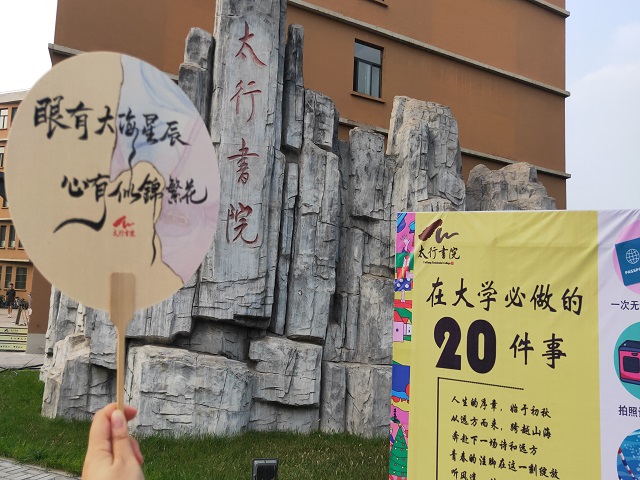 眼有大海星辰
心有似錦繁花
太行書院
太行書院
太行書院
在大学必做的
20件事
人生的序章，始于初秋
从远方而来，跨越山海
奔赴下一场诗和远方
青春的注脚在这一刻绽放
一次无
拍照